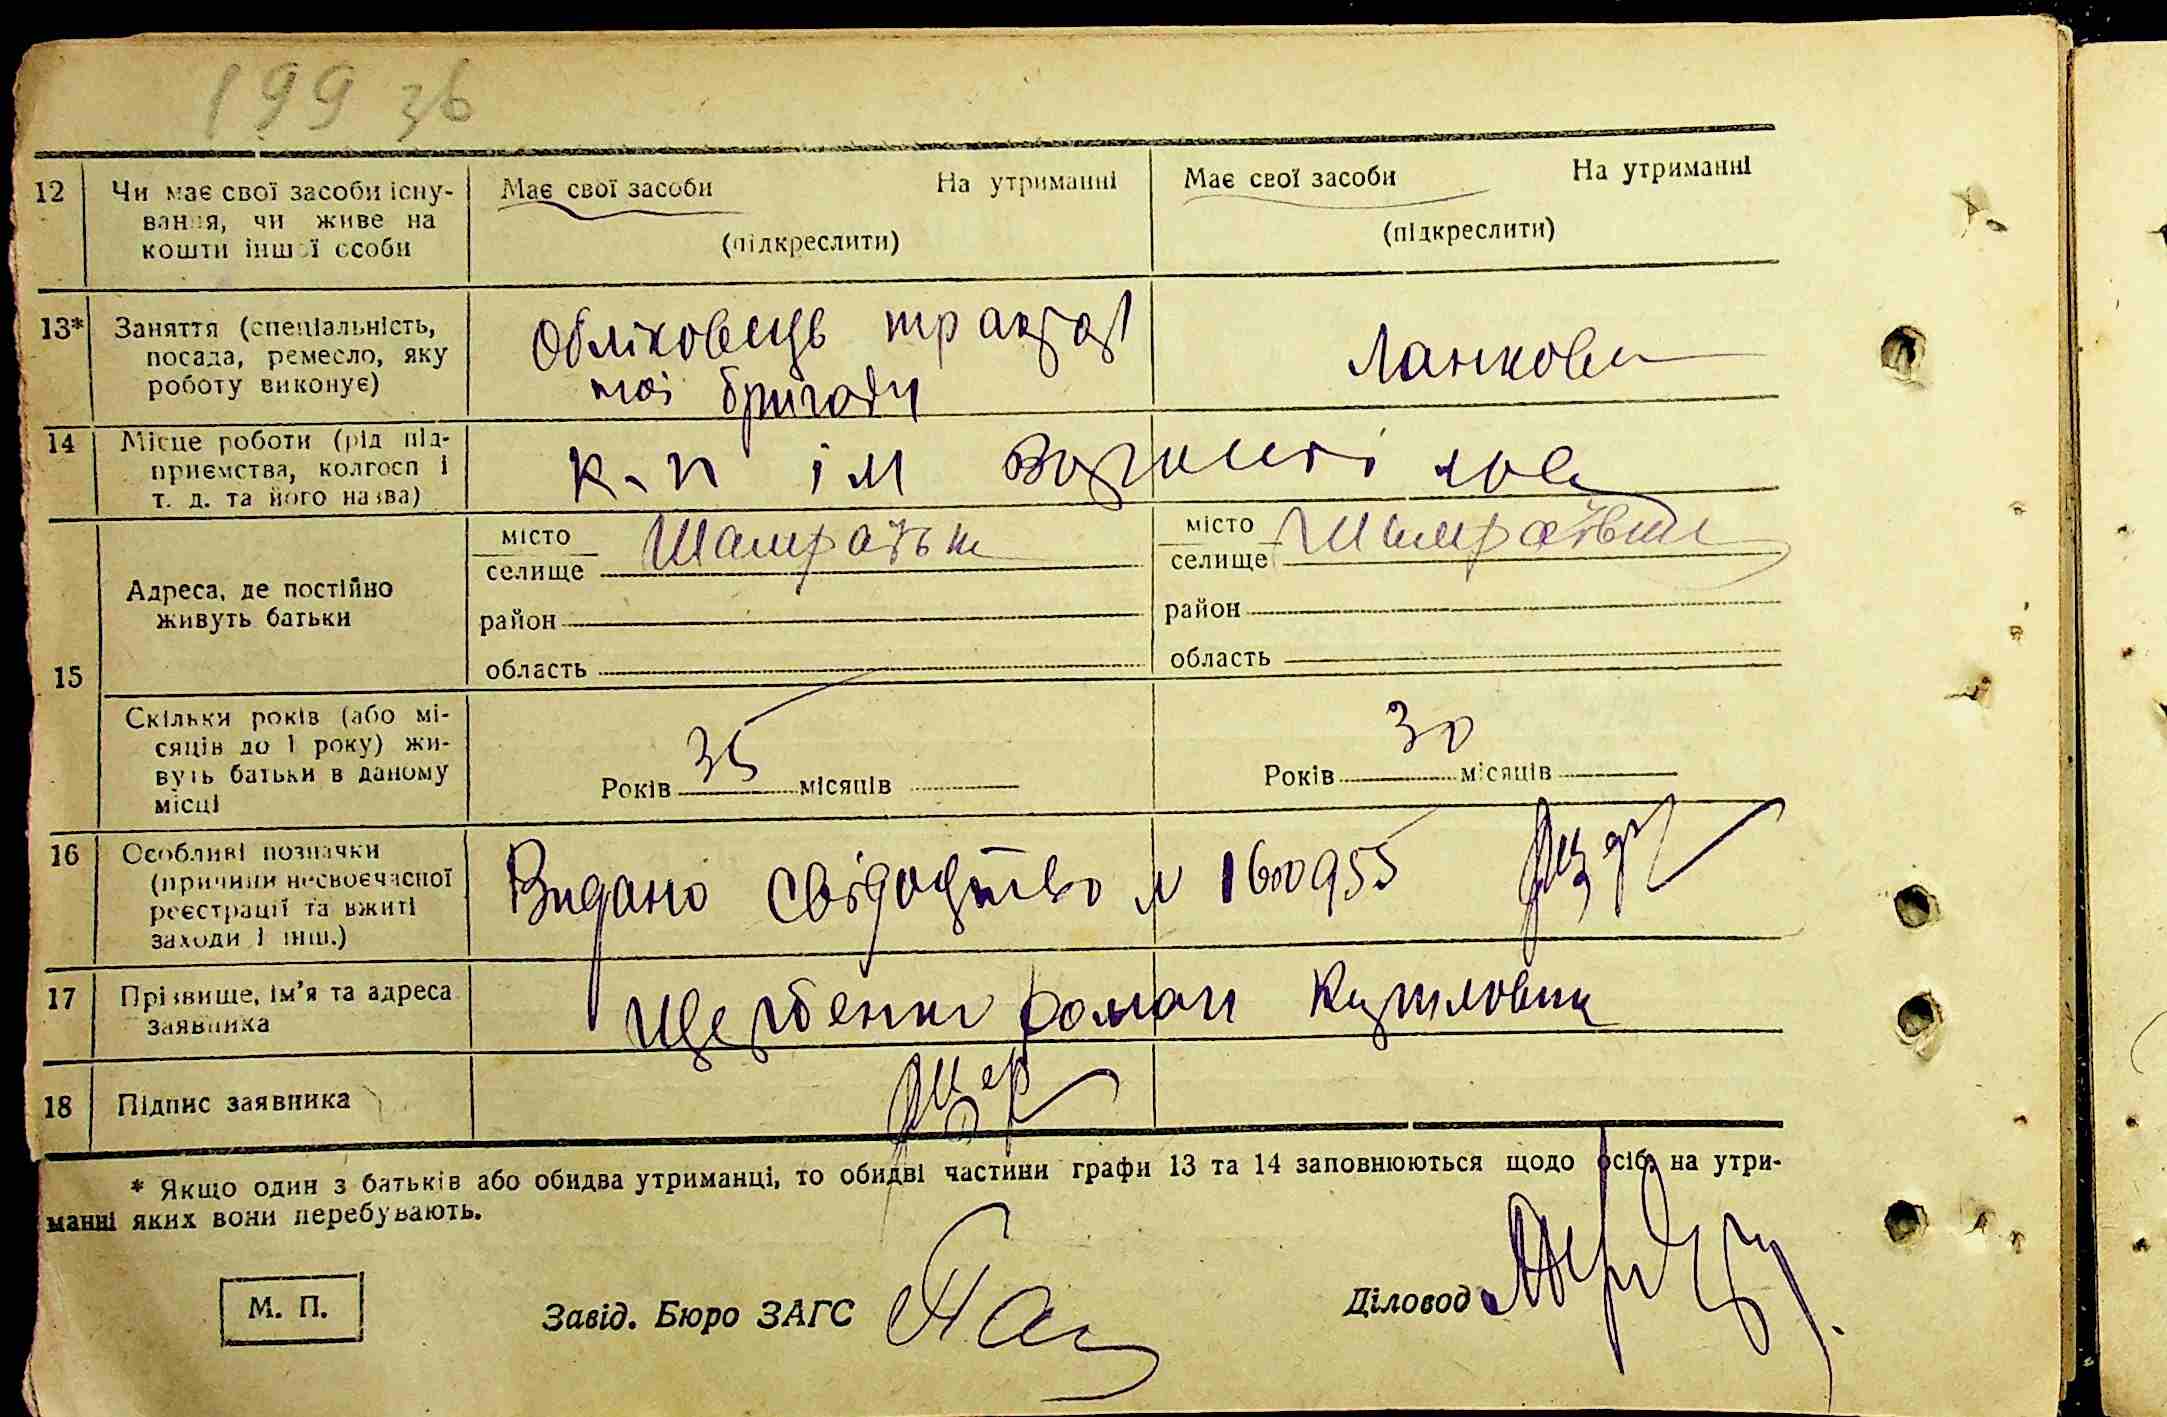 199 зв
12 Чи має свої засоби існу- Має свої засоби На утриманні Має свої засоби На утриманні
вання, чи живе на
кошти іншої особи (підкреслити) (підкреслити)
13* Заняття (спеціальність, Обліковець трактор
посада, ремесло, яку Ланкова
роботу виконує) ної бригади
14 Місце роботи (рід під-
приємства, колгосп і к-п ім Ворошилова
т. д. та його назва)
місто Шамраївки місто Шамраївки
селище селище
15 Адреса, де постійно
живуть батьки район район
область область
Скільки років (або мі-
сяців до 1 року) жи-
вуть батьки в даному Років 35 місяців Років 30 місяців
місці
16 Особливі позначки
(причини несвоєчасної Видано свідоцтво N 1600955
реєстрації та вжиті
заходи і інш.)
17 Прізвище, ім'я та адреса Щербенко Роман
заявника
18 Підпис заявника
* Якщо один з батьків або обидва утриманці, то обидві частини графи 13 та 14 заповнюються щодо осіб, на утри-
манні яких вони перебувають.
М. П. Завід. Бюро ЗАГС Діловод